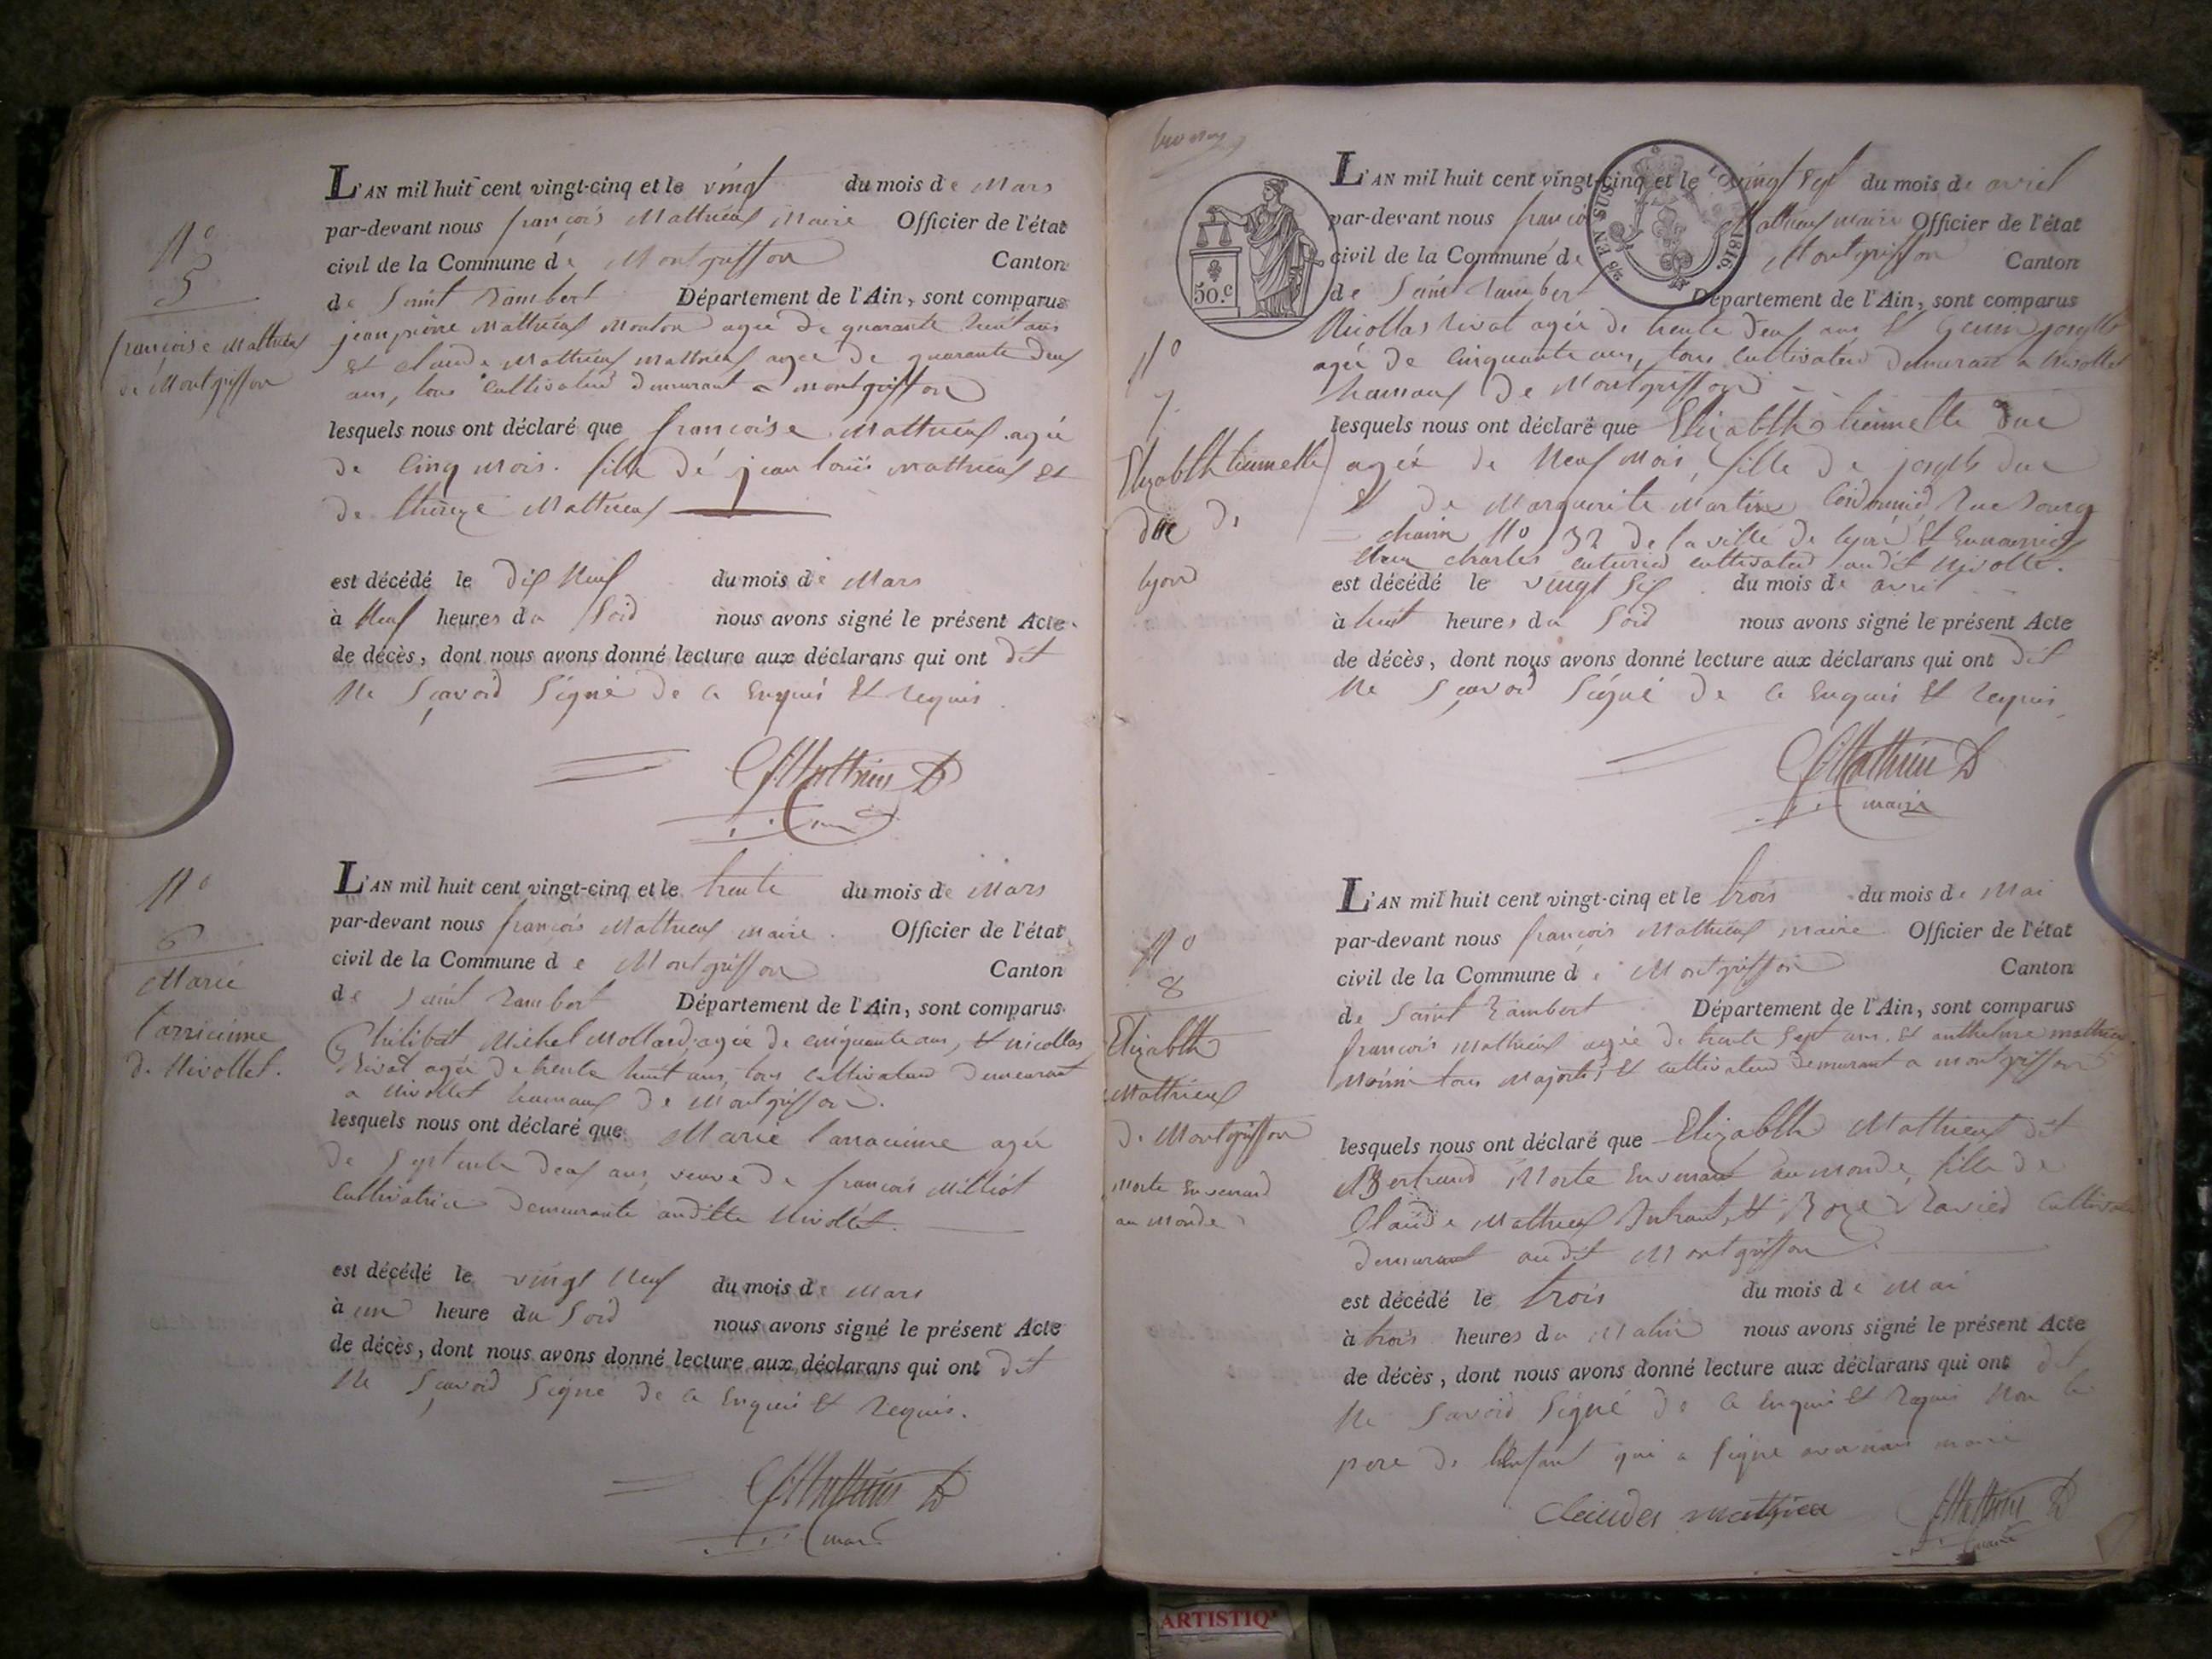 N°
5
françoise Mathieux
de Montgriffon
L'AN mil huit cent vingt-cinq et le vingt du mois de Mars
par-devant nous françois Mathieux Maire Officier de l'état
civil de la Commune de Montgriffon Canton
de Saint Rambert Département de l'Ain, sont comparus
jean pierre Mathieux Mouton agée de quarante huit ans
et claude Mathieux Mathieux agée de quarante deux
ans, tous cultivateurs demurant a montgriffon
lesquels nous ont déclaré que françoise Mathieux agée
de Cinq Mois. fille dé jean louis Mathieux et
de Mathieux
est décédé le dix Neuf du mois de Mars
à Neuf heures du Soir nous avons signé le présent Acte
de décès, dont nous avons donné lecture aux déclarans qui ont dit
Ne Sçavoir Signé de ce Enquis Et requis.
Mathieu
N°
6
Marie
de Nivollet.
L'AN mil huit cent vingt-cinq et le trente du mois de Mars
par-devant nous françois Mathieux Maire Officier de l'état
civil de la Commune de Montgriffon Canton
de Saint Rambert Département de l'Ain, sont comparus
Philibert Michel Mollard, agée de cinquante ans, Et Nicollas
Rivat agée de trente huit ans, tous cultivateurs demeurant
a Nivollet hamaux de Montgriffon.
lesquels nous ont déclaré que Marie agée
de Septente deux ans, veuve de françois Milliot
Cultivatrice demeurante audite Nivollet.
est décédé le vingt Neuf du mois de Mars
à un heure du Soir nous avons signé le présent Acte
de décès, dont nous avons donné lecture aux déclarans qui ont dit
Ne Sçavoir Signe de ce Enquis Et requis.
Mathieu
maire
50.c
25 EN SUS
1816.
N°
7
Elizabth tiennette
duc de
lyon
L'AN mil huit cent vingt-cinq et le vingt Sept du mois de avril
par-devant nous françois Mathieux Maire Officier de l'état
civil de la Commune de Montgriffon Canton
de Saint Rambert Département de l'Ain, sont comparus
Nicollas Rivat agée de trente deux ans Et joseph
agée de Cinquante ans, tous Cultivateurs demurant a Nivollet
hamaux de Montgriffon
lesquels nous ont déclaré que Elizabth tiennette duc
agée de Neuf Mois, fille de joseph duc
Et de Marguerite Martin Cordonnier Rue Bourg
chanin N° 32 de la ville de lyon Et
charles cultivateur audit Nivollet.
est décédé le vingt Six du mois de avril
à huit heures du Soir nous avons signé le présent Acte
de décès, dont nous avons donné lecture aux déclarans qui ont dit
Ne Sçavoir Signé de ce Enquis Et requis
Mathieu
maire
N°
8
Elizabth
Mathieux
de Montgriffon
morte En venant
au Monde
L'AN mil huit cent vingt-cinq et le trois du mois de Mai
par-devant nous françois Mathieux maire Officier de l'état
civil de la Commune de Montgriffon Canton
de Saint Rambert Département de l'Ain, sont comparus
francois Mathieux agée de trente Sept ans. Et anthelme mathieu
tous Majors, Et cultivateurs demurant a montgriffon
lesquels nous ont déclaré que Elizabth Mathieux dit
Bertrand Morte En venant au Monde, fille de
Claude Mathieux Et Roze Ravier
demurant audit Montgriffon
est décédé le trois du mois de Mai
à trois heures du Matin nous avons signé le présent Acte
de décès, dont nous avons donné lecture aux déclarans qui ont dit
Ne Savoir Signé de ce Enquis Et requis Non le
pere de l'Enfant qui a Signe avec nous maire
Claudes mathieu
Mathieu
maire
ARTISTIQ'